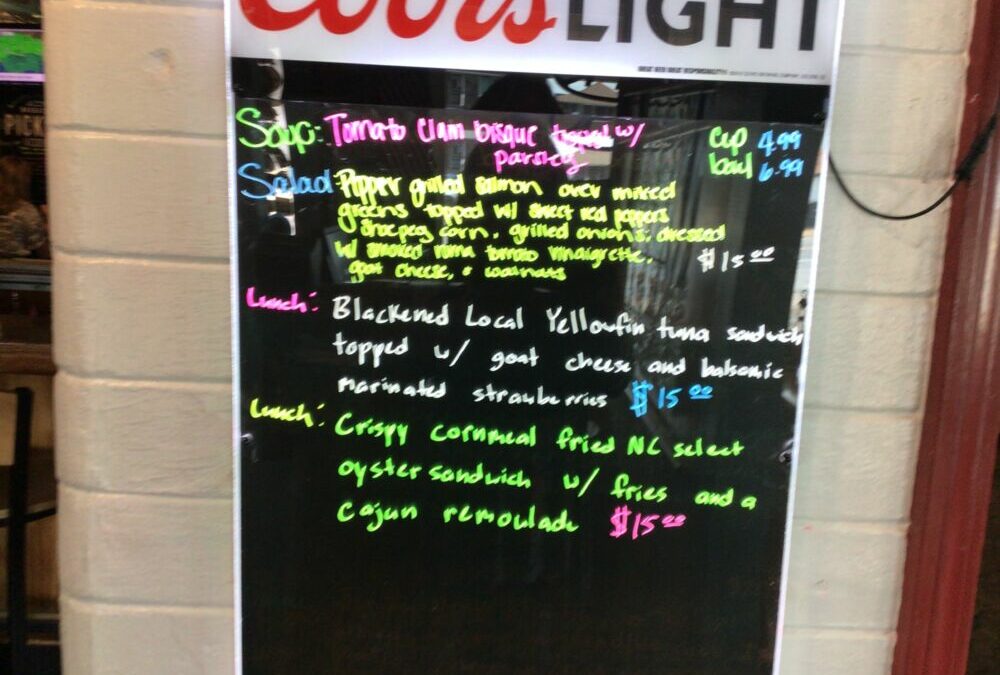 Coors LIGHT
PICK
Soup: Tomato Clam bisque topped w/ cup 4.99
parsley bowl 6.99
Salad: Pepper grilled salmon over mixed
greens topped w/ sweet red peppers
shoepeg corn, grilled onions, dressed
w/ smoked roma tomato vinaigrette, $15.00
goat cheese, + walnuts
Lunch: Blackened Local Yellowfin tuna sandwich
topped w/ goat cheese and balsamic
marinated strawberries $15.00
Lunch: Crispy cornmeal fried NC select
oyster sandwich w/ fries and a
cajun remoulade $15.00